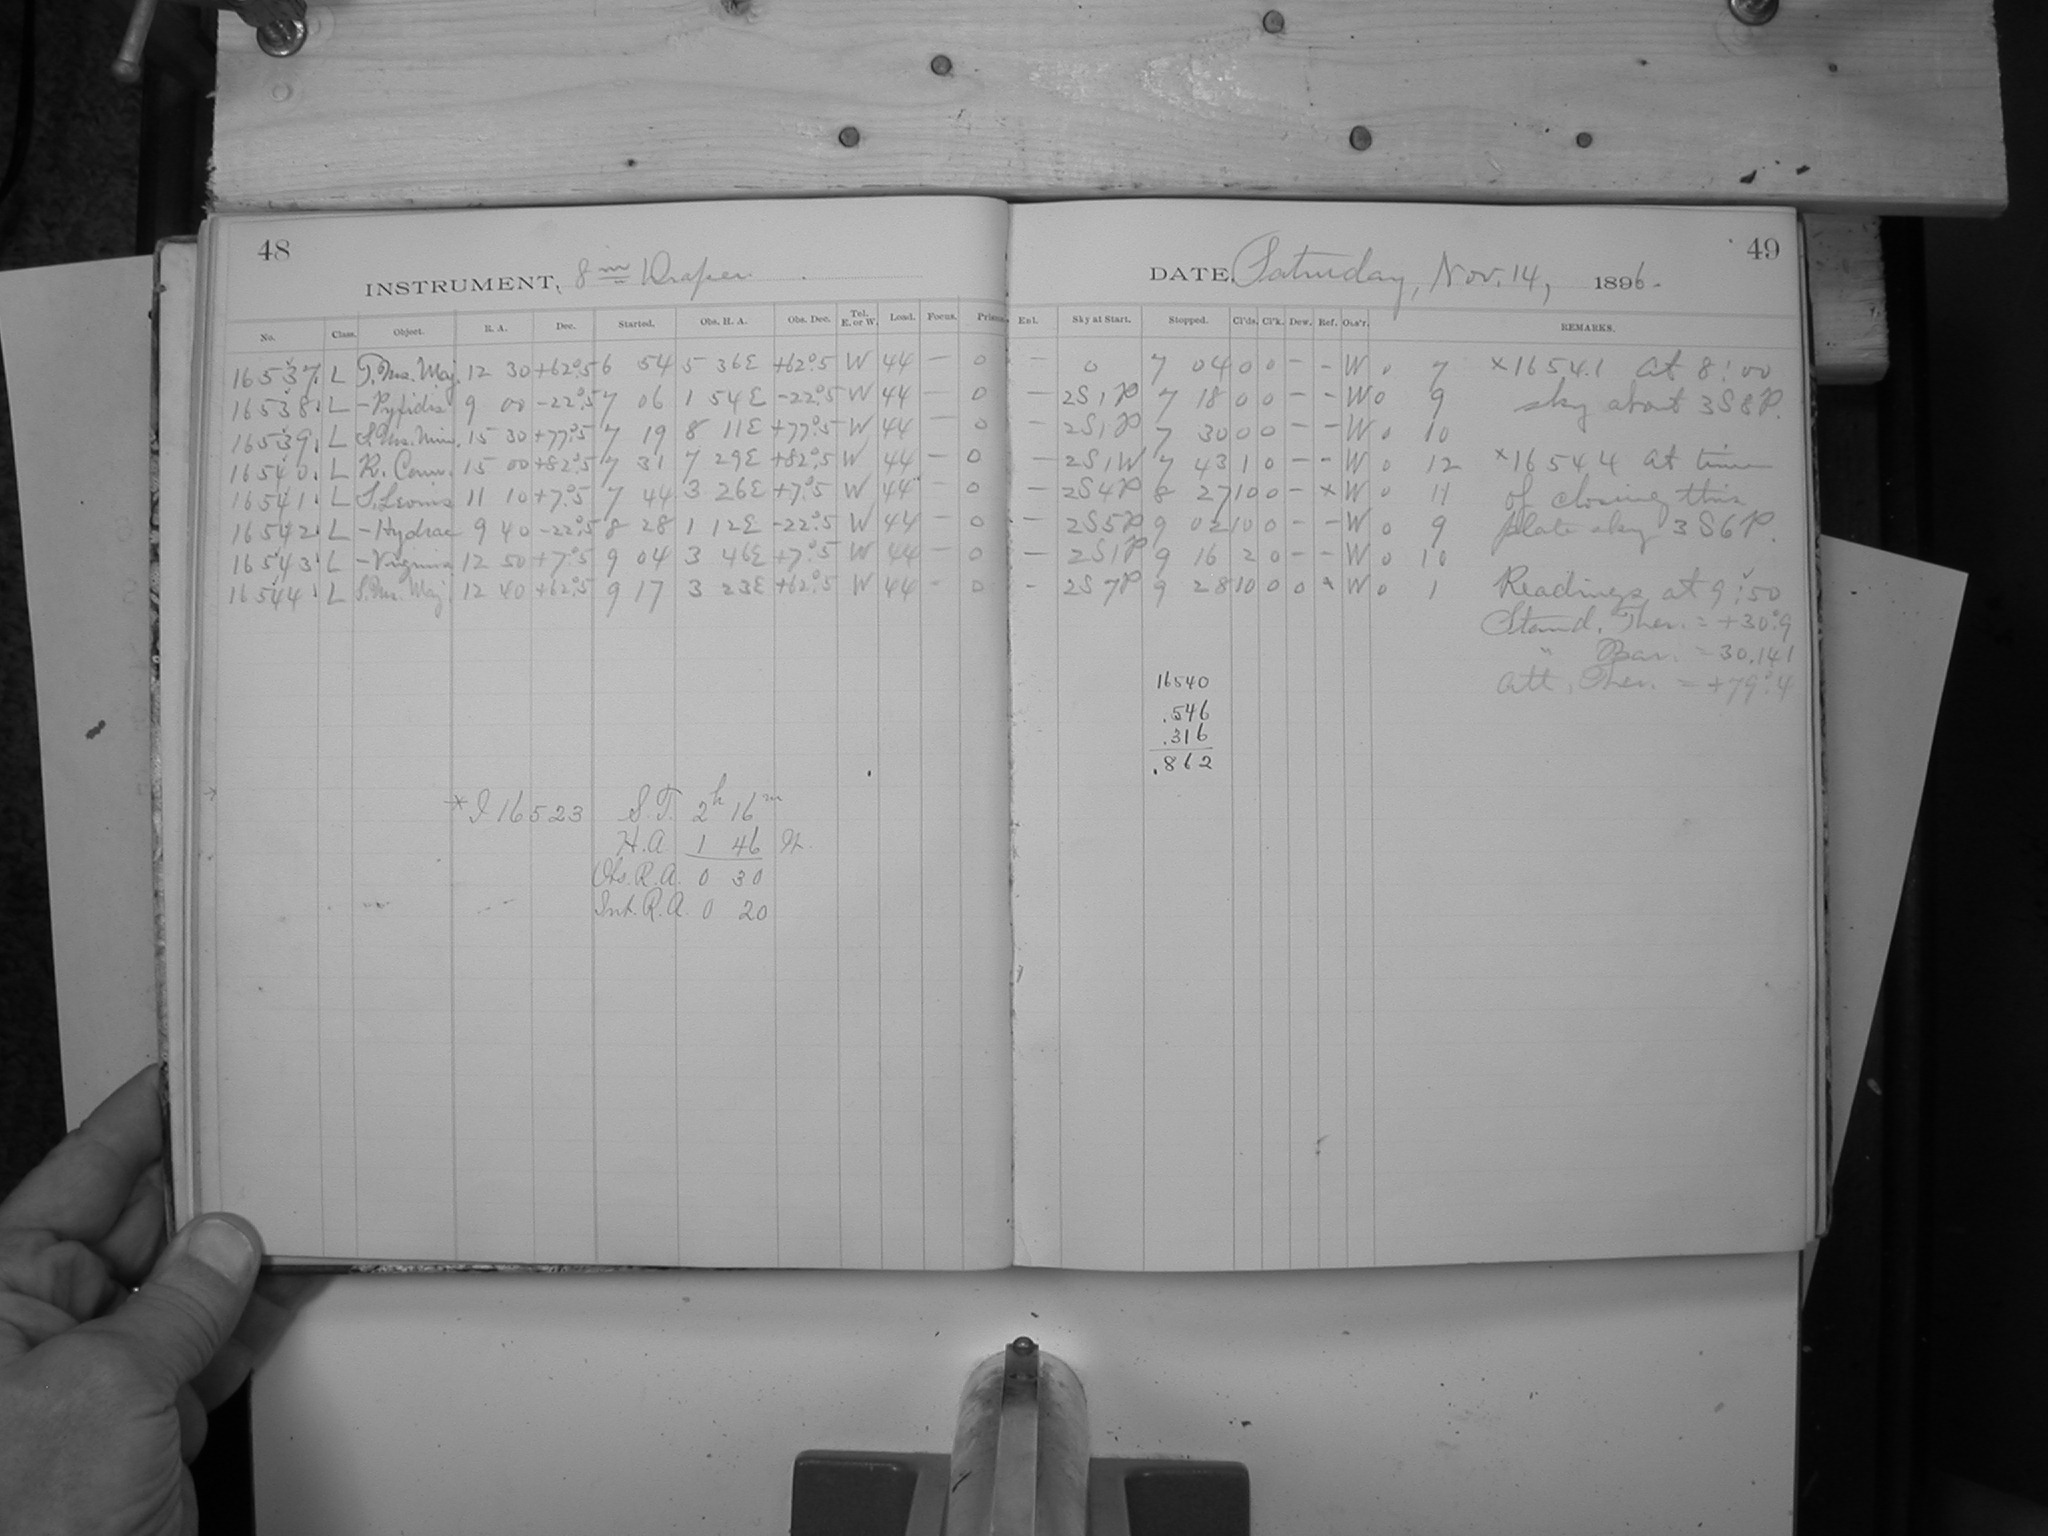 48
INSTRUMENT, 8 in Draper.
No. Class. Object. R. A. Dec. Started. Obs. H. A. Obs. Dec. Tel. E. or W. Load. Focus. Prism.
16537. L T. Urs. Maj. 12 30 +62°.5 6 54 5 36E +62°.5 W 44 — 0
16538. L – Pyxidis 9 00 -22°.5 7 06 1 54E -22°.5 W 44 — 0
16539. L S. Urs. Min. 15 30 +77°.5 7 19 8 11E +77°.5 W 44 — 0
16540. L R. Cam. 15 00 +82°.5 7 31 7 29E +82°.5 W 44 — 0
16541. L S. Leonis 11 10 +7°.5 7 44 3 26E +7°.5 W 44 — 0
16542. L – Hydrae 9 40 -22°.5 8 28 1 12E -22°.5 W 44 — 0
16543. L – Virginis 12 50 +7°.5 9 04 3 46E +7°.5 W 44 — 0
16544. L S. Urs. Maj. 12 40 +62°.5 9 17 3 23E +62°.5 W 44 - 0
*I 16523 S.T. 2h 16m
H.A 1 46 W.
Obs. R.A. 0 30
Int. R.A. 0 20
49
DATE, Saturday, Nov. 14, 1896.
Exl. Sky at Start. Stopped. Cl'ds. Cl'k. Dew. Ref. Obs'r. REMARKS.
— 0 7 04 0 0 – - W 0 7 ×16541 at 8:00
— 2S1P 7 18 0 0 – – W 0 9 sky about 3S8P.
— 2S1P 7 30 0 0 – – W 0 10
— 2S1W 7 43 1 0 – - W 0 12 ×16544 at time
— 2S4P 8 27 10 0 - × W 0 11 of closing this
— 2S5P 9 02 10 0 – – W 0 9 plate sky 3S6P.
— 2S1P 9 16 2 0 – – W 0 10
- 2S7P 9 28 10 0 0 × W 0 1 Readings at 9:50
Stand. Ther. = +30°.9
" Bar. = 30.141
Att. Ther. = +79°.4
16540
.546
.316
.862